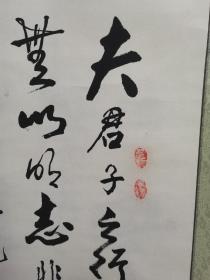 夫君子之行
無以明志非